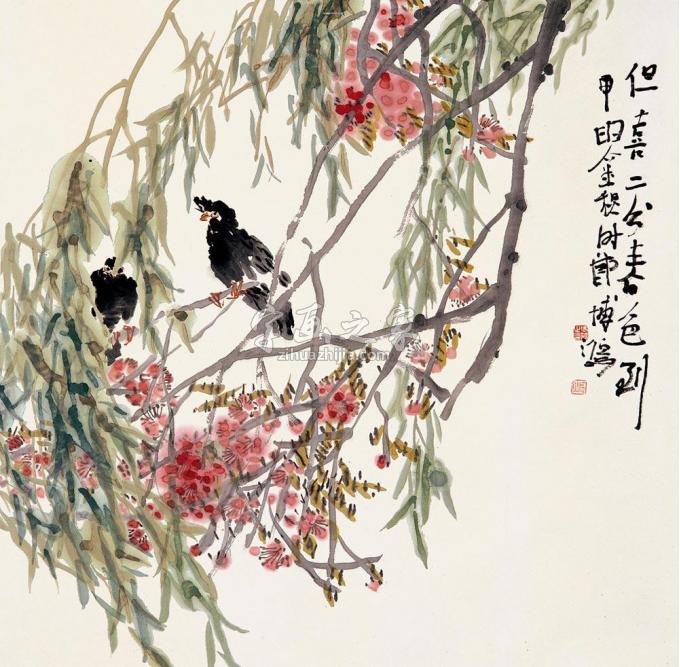 但喜二分春色到
甲申金秋时
字画之家
zihuazhijia.com